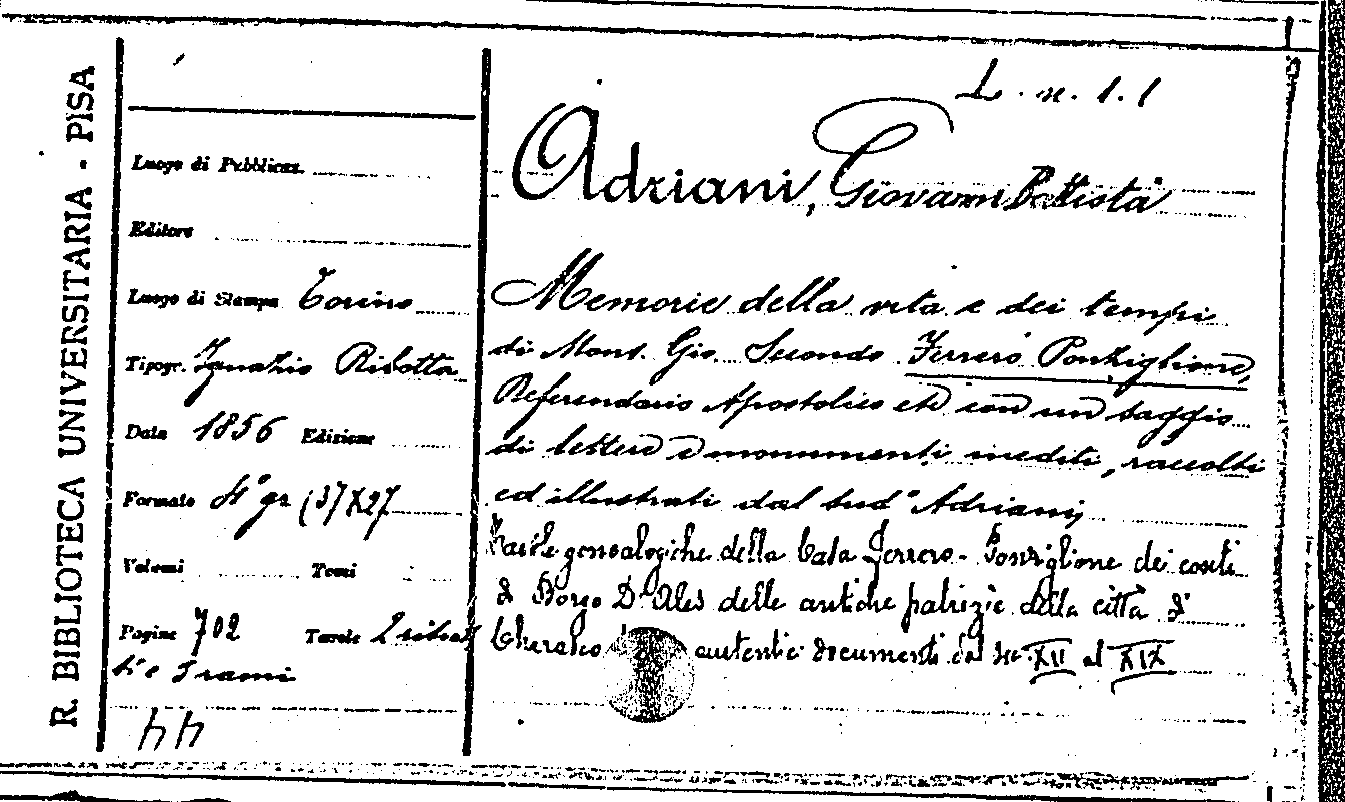 R. BIBLIOTECA UNIVERSITARIA - PISA
L. n. 1. 1
Adriani, Giovanni Battista
Luogo di Pubblicaz.
Editore
Luogo di Stampa Torino
Tipogr. Ignazio Ribotta
Data 1856 Edizione
Formato 4° gr (37x27
Volumi Tomi
Pagine 702 Tavole 2 ritrat
ti e 3 rami
44
Memorie della vita e dei tempi
di Mons. Gio. Secondo Ferrero Ponziglione,
Referendario Apostolico etc con un saggio
di lettere e monumenti inediti, raccolti
ed illustrati dal sud° Adriani
Tavole genealogiche della Casa Ferrero-Ponziglione dei conti
di Borgo D'Ales delle antiche patrizie della città di
Cherasco autentici documenti dal sec. XII al XIX